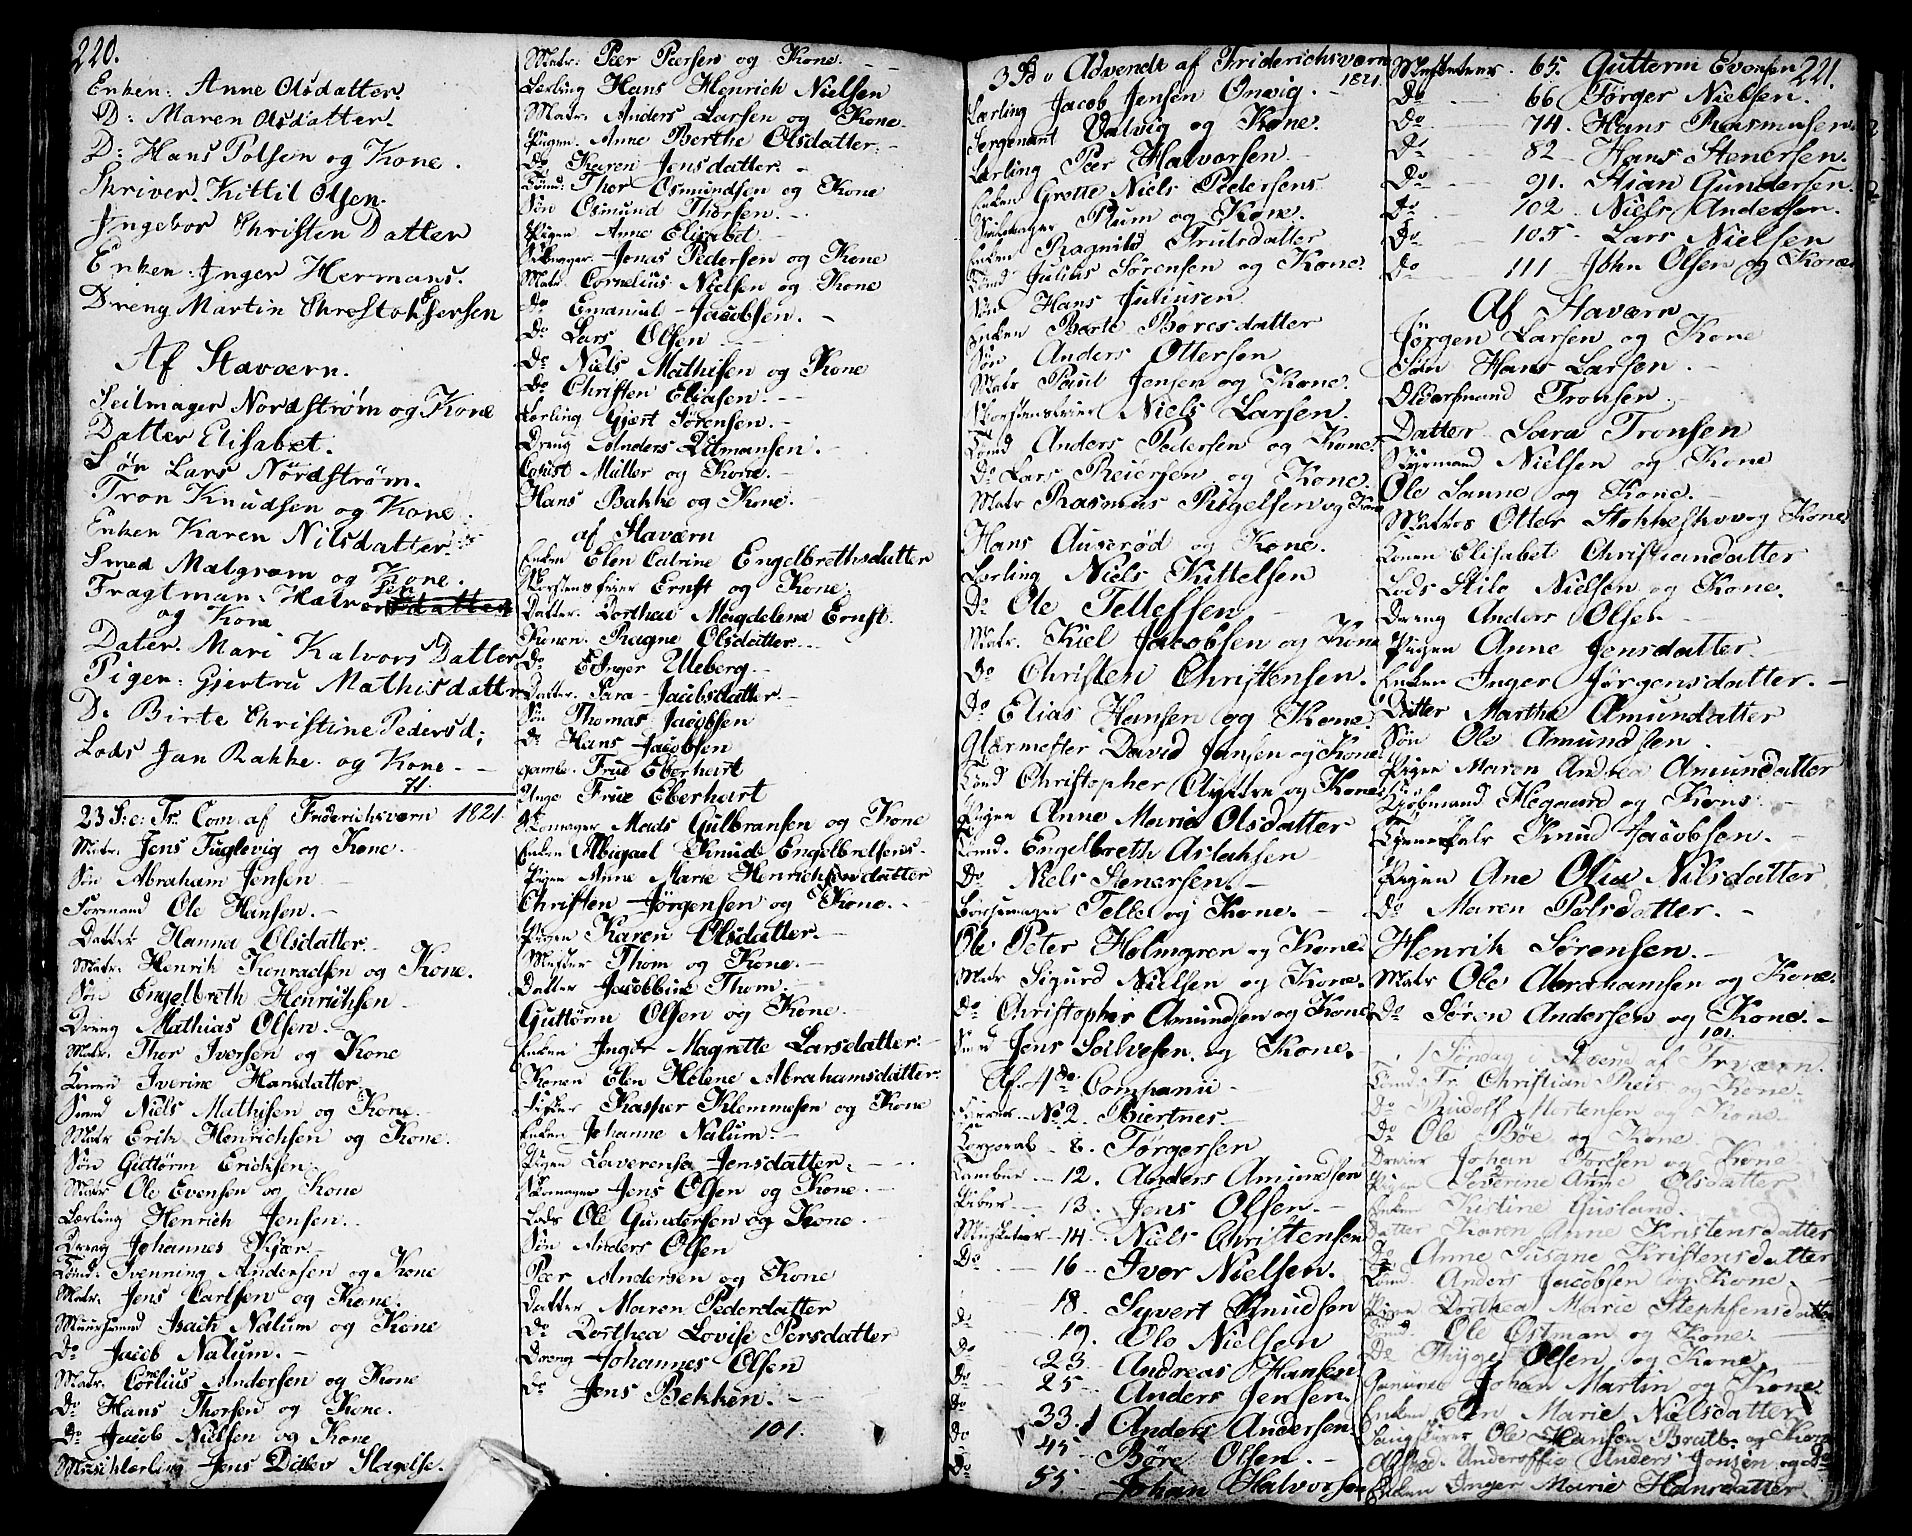 220.
Enken: Anne Olsdatter.
D: Maren Olsdatter.
D: Hans Polsen og Kone.
Skriver. Kittil Olsen.
Ingebor Christen Datter
Enken: Inger Hermans.
Dreng Martin Chrestoffersen
Af Staværn.
Seilmager Nordstrøm og Kone
Datter Elisabet.
Søn Lars Nordstrøm.
Tron Knudsen og Kone.
Enken Karen Nilsdatter.
Smed Malgram og Kone.
Fragtman: Halvor
og Kone
Dater. Mari Halvors Datter
Pigen: Gjertru Mathisdatter
D. Birte Christine Pedersd;
Lods Jan Bakke. og Kone.
71.
23 S: e: Tr. Com af Friderichsværn 1821
Matr. Jens Fuglevig og Kone.
Søn Abraham Jensen
Formand Ole Hansen.
Datter Hanna Olsdatter
Matr. Henrik Konradsen og Kone.
Søn Engelbreth Henrichsen
Dreng Mathias Olsen.
Matr. Thor Iversen og Kone
Konen Iverine Hansdatter
Smed Niels Mathisen og Kone.
Matr Erik Henrichsen og Kone.
Søn Guttorm Ericksen.
Matr Ole Evensen og Kone
Lærling Henrich Jensen.
Dreng Johannes Kjær
Tømd. Svenning Andersen og Kone
Matr. Jens Carlsen og Kone.
Muurmand Isach Nalum og Kone
Do Jacob Nalum.
Matr. Cornlius Andersen og Kone
Do Hans Thorsen og Kone.
Do Jacob Nielsen og Kone
Musiklærling Jens Ditlev Slagelse.
Matr. Peer Persen og Kone.
Lærling Hans Henrich Nielsen
Matr. Anders Larsen og Kone.
Pigen Anne Berthe Olsdatter.
Do Karen Jensdatter.
Tømd. Thor Osmundsen og Kone
Søn Osmund Thorsen.
Pigen Anne Elisabet
Seilmager Jonas Pedersen og Kone
Matr. Cornelius Nielsen og Kone
Do Emanuel Jacobsen.
Do Lars Olsen
Do Niels Mathisen og Kone
Do Christen Eliasen.
Lærling Gjert Sørensen.
Dreng Anders Ditmansen.
Müller og Kone.
Hans Bakke og Kone.
af Staværn
Enken Elen Catrine Engelbrethsdatter
Skorstensfeier Ernst og Kone.
Datter. Dorthea Magdelena Ernst.
Konen. Ragne Olsdatter.
Do Inger Ueberg
Datter. Sara Jacobsdatter.
Søn Thomas Jacobsen
Do Hans Jacobsen
gamle Frue Eberhart
Unge Frue Eberhart
Skomager Mads Gulbransen og Kone
Enken Abigael Knud Engelbretsens
Pigen Anne Marie Henrichsendatter
Christen Jørgensen og Kone.
Pigen Karen Olsdatter.
Thom og Kone.
Datter Jacobbine Thom.
Guttorm Olsen og Kone.
Enken Inger Magrette Larsdatter.
Konen Elen Helene Abrahamsdatter.
Fisker Kasper Klemmesen og Kone
Enken Johanne Nalum.
Pigen Laverensa Jensdatter.
Skomager Jens Olsen og Kone.
Lods Ole Gundersen og Kone.
Søn Anders Olsen
Peer Andersen og Kone
Datter Maren Pederdatter
Do Dorthea Lovise Persdatter
Dreng Johannes Olsen
Do Jens Bekken.
101.
3 S. Advendt af Friderichsværn
1821.
Lærling Jacob Jensen Onvig.
Sergeant Valvig og Kone.
Lærling Peer Halvorsen
Enken Grette Niels Pedersens
Plum og Kone.
Enken Ragnild Trulsdatter
Tømd Julius Sørensen og Kone.
Søn Hans Juliusen
Enken Berte Børresdatter
Søn Anders Ottersen
Matr Paul Jensen og Kone.
Skorstensfeier Niels Larsen.
Tømd Anders Pedersen og Kone.
Do Lars Reiersen og Kone.
Matr Rasmus Rigelsen og Kone
Hans Auserød og Kone.
Lærling Niels Kittelsen
Do Ole Tellefsen
Matr. Kiel Jacobsen og Kone
Do Christen Christensen.
Do Elias Hansen og Kone.
Glarmester David Jansen og Kone
Tømd Christopher og Kone.
Pigen Anne Marie Olsdatter
Tømd. Engelbreth Aslaksen
Do Niels Stenersen.
Bøssemager Telle og Kone.
Ole Peter Holmgren og Kone.
Matr Sigurd Nielsen og Kone.
Do Christopher Amundsen og Kone
Smed Jens Solvesen og Kone.
Af 4de Companii
Fourer No 2. Biertnes
Corporal 8. Torgersen
Tambur 12. Anders Amundsen
Piber 13. Jens Olsen.
Musketeer 14. Niels Christensen
Do 16 Iver Nielsen.
18. Syvert Knudsen
Do 19. Ole Nielsen
Do 23. Andreas Hansen
Do 25 Anders Jensen.
Do 33. Anders Andersen.
Do 45 Børe Olsen.
Do 55 Johan Halvorsen
Musketeer 65. Guttorm Evensen 221.
Do 66 Torger Nielsen.
Do 74. Hans Rasmusen
Do 82 Hans Stenersen.
Do 91. Stian Gundersen.
Do 102 Niels Andersen.
Do 105 Lars Nielsen
Do 111 John Olsen og Kone
Af Staværn
Jørgen Larsen og Kone
Søn Hans Larsen.
Oldermand Tronsen.
Datter Sara Tronsen
Styrmand Nielsen og Kone
Ole Sanne og Kone.
Matros Otter Stokkeskov og Kone
Konen Elisabet Christiandatter
Lods Stilo Nielsen og Kone.
Dreng Anders Olsen
Pigen Anne Jensdatter.
Enken Inger Jørgensdatter.
Datter Marthe Amundatter
Søn Ole Amundsen
Pigen Maren Andrea Amundatter
Kjøbmand Hegaard og Kone
Knud Jacobsen.
Pigen Ane Olia Nilsdatter
Do Maren Polsdatter.
Henrik Sørensen.
Matr Ole Abrahamsen og Kone.
Do Søren Andersen og Kone.
101.
1 Søndag i Advent af Frværn.
Tømd. Fr. Christian Reis og Kone.
Do Rudolf Mortensen og Kone
Do Ole Bøe og Kone.
Dreier Johan Torsen og Kone
Pigen Severine Anne Olsdatter
Enken Kistine Gusland.
Datter Karen Anne Kristensdatter
Do Anne Susane Kristensdatter
Tømd. Anders Jacobsen og Kone.
Pigen Dorthea Marie Stephensdatter
Tømd. Ole Ostman og Kone.
Do Thyge Olsen og Kone
Johan Martin og Kone.
Enken Elen Marie Nielsdatter
Ole Hansen Bratt. og Kone
Underoffic Anders Jonsen og Do
Enken Inger Marie Hansdatter.